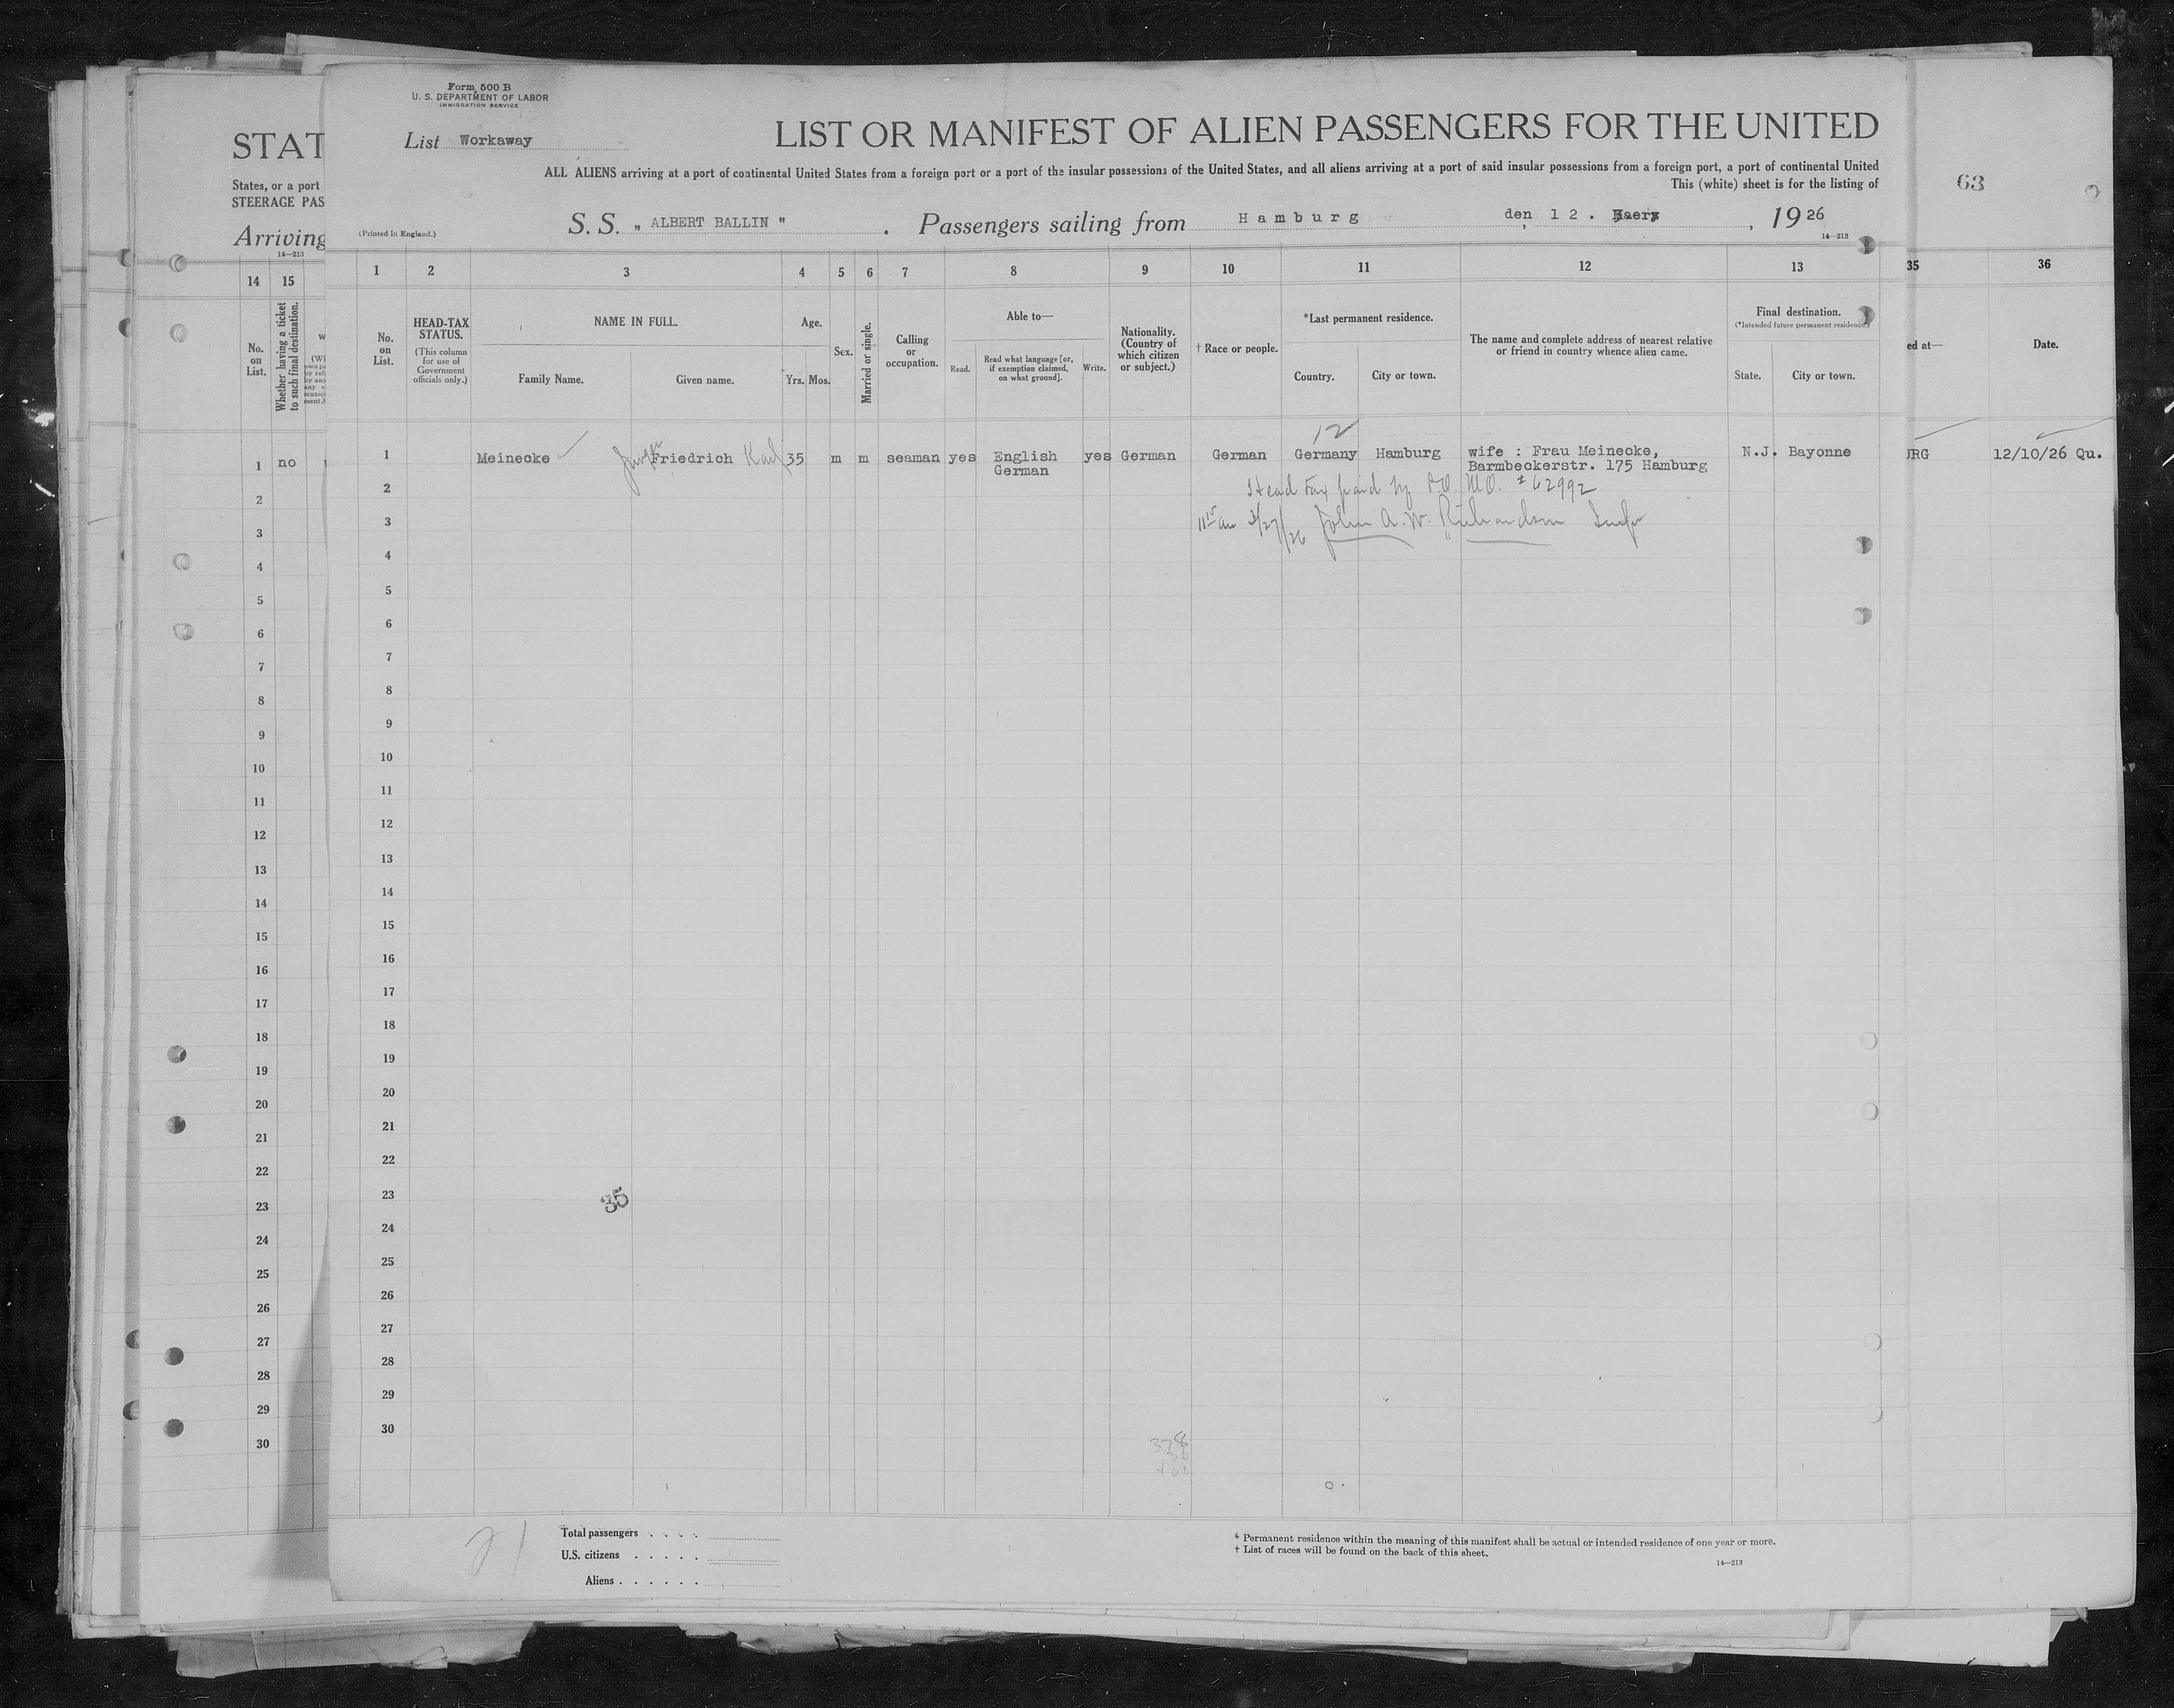 Form 500 B
U. S. DEPARTMENT OF LABOR
IMMIGRATION SERVICE
List Workaway
LIST OR MANIFEST OF ALIEN PASSENGERS FOR THE UNITED
ALL ALIENS arriving at a port of continental United States from a foreign port or a port of the insular possessions of the United States, and all aliens arriving at a port of said insular possessions from a foreign port, a port of continental United
This (white) sheet is for the listing of
(Printed in England.)
S. S. „ ALBERT BALLIN " . Passengers sailing from Hamburg , den 12. , 1926
14—213
1 2 3 4 5 6 7 8 9 10 11 12 13
No. on List.
HEAD-TAX STATUS.
(This column for use of Government officials only.)
NAME IN FULL.
Family Name.
Given name.
Age.
Yrs. Mos.
Sex.
Married or single.
Calling or occupation.
Able to—
Read.
Read what language [or, if exemption claimed, on what ground].
Write.
Nationality. (Country of which citizen or subject.)
† Race or people.
*Last permanent residence.
Country.
City or town.
The name and complete address of nearest relative or friend in country whence alien came.
Final destination.
(*Intended future permanent residence.)
State.
City or town.
12
1 Meinecke Friedrich Karl 35 m m seaman yes English yes German German Germany Hamburg wife : Frau Meinecke, N.J. Bayonne
German Barmbeckerstr. 175 Hamburg
2 Head tax paid by P.O. M.O. # 62992
3 John A. W. Richardson
4
5
6
7
8
9
10
11
12
13
14
15
16
17
18
19
20
21
22
23
35
24
25
26
27
28
29
30
378
21
Total passengers . . . .
U.S. citizens . . . . .
Aliens . . . . . .
* Permanent residence within the meaning of this manifest shall be actual or intended residence of one year or more.
† List of races will be found on the back of this sheet.
14—213
STAT
States, or a port
STEERAGE PAS
Arriving
14—213
14 15
No. on List.
Whether having a ticket to such final destination.
1 no
2
3
4
5
6
7
8
9
10
11
12
13
14
15
16
17
18
19
20
21
22
23
24
25
26
27
28
29
30
63
35 36
ed at—
Date.
URG 12/10/26 Qu.